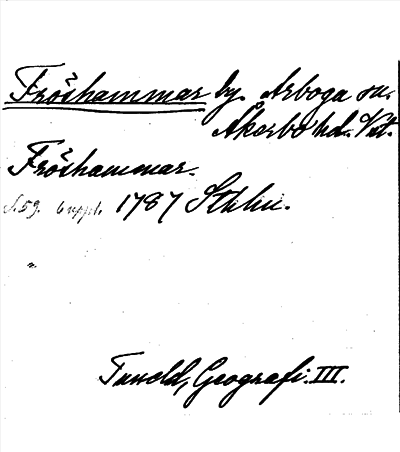 Fröshammar by. Arboga sn.
Åkerbo hd. Vstm.
Fröshammar.
S. 59. 6 uppl. 1787 Sthlm.
"
Tuneld, Geografi. III.